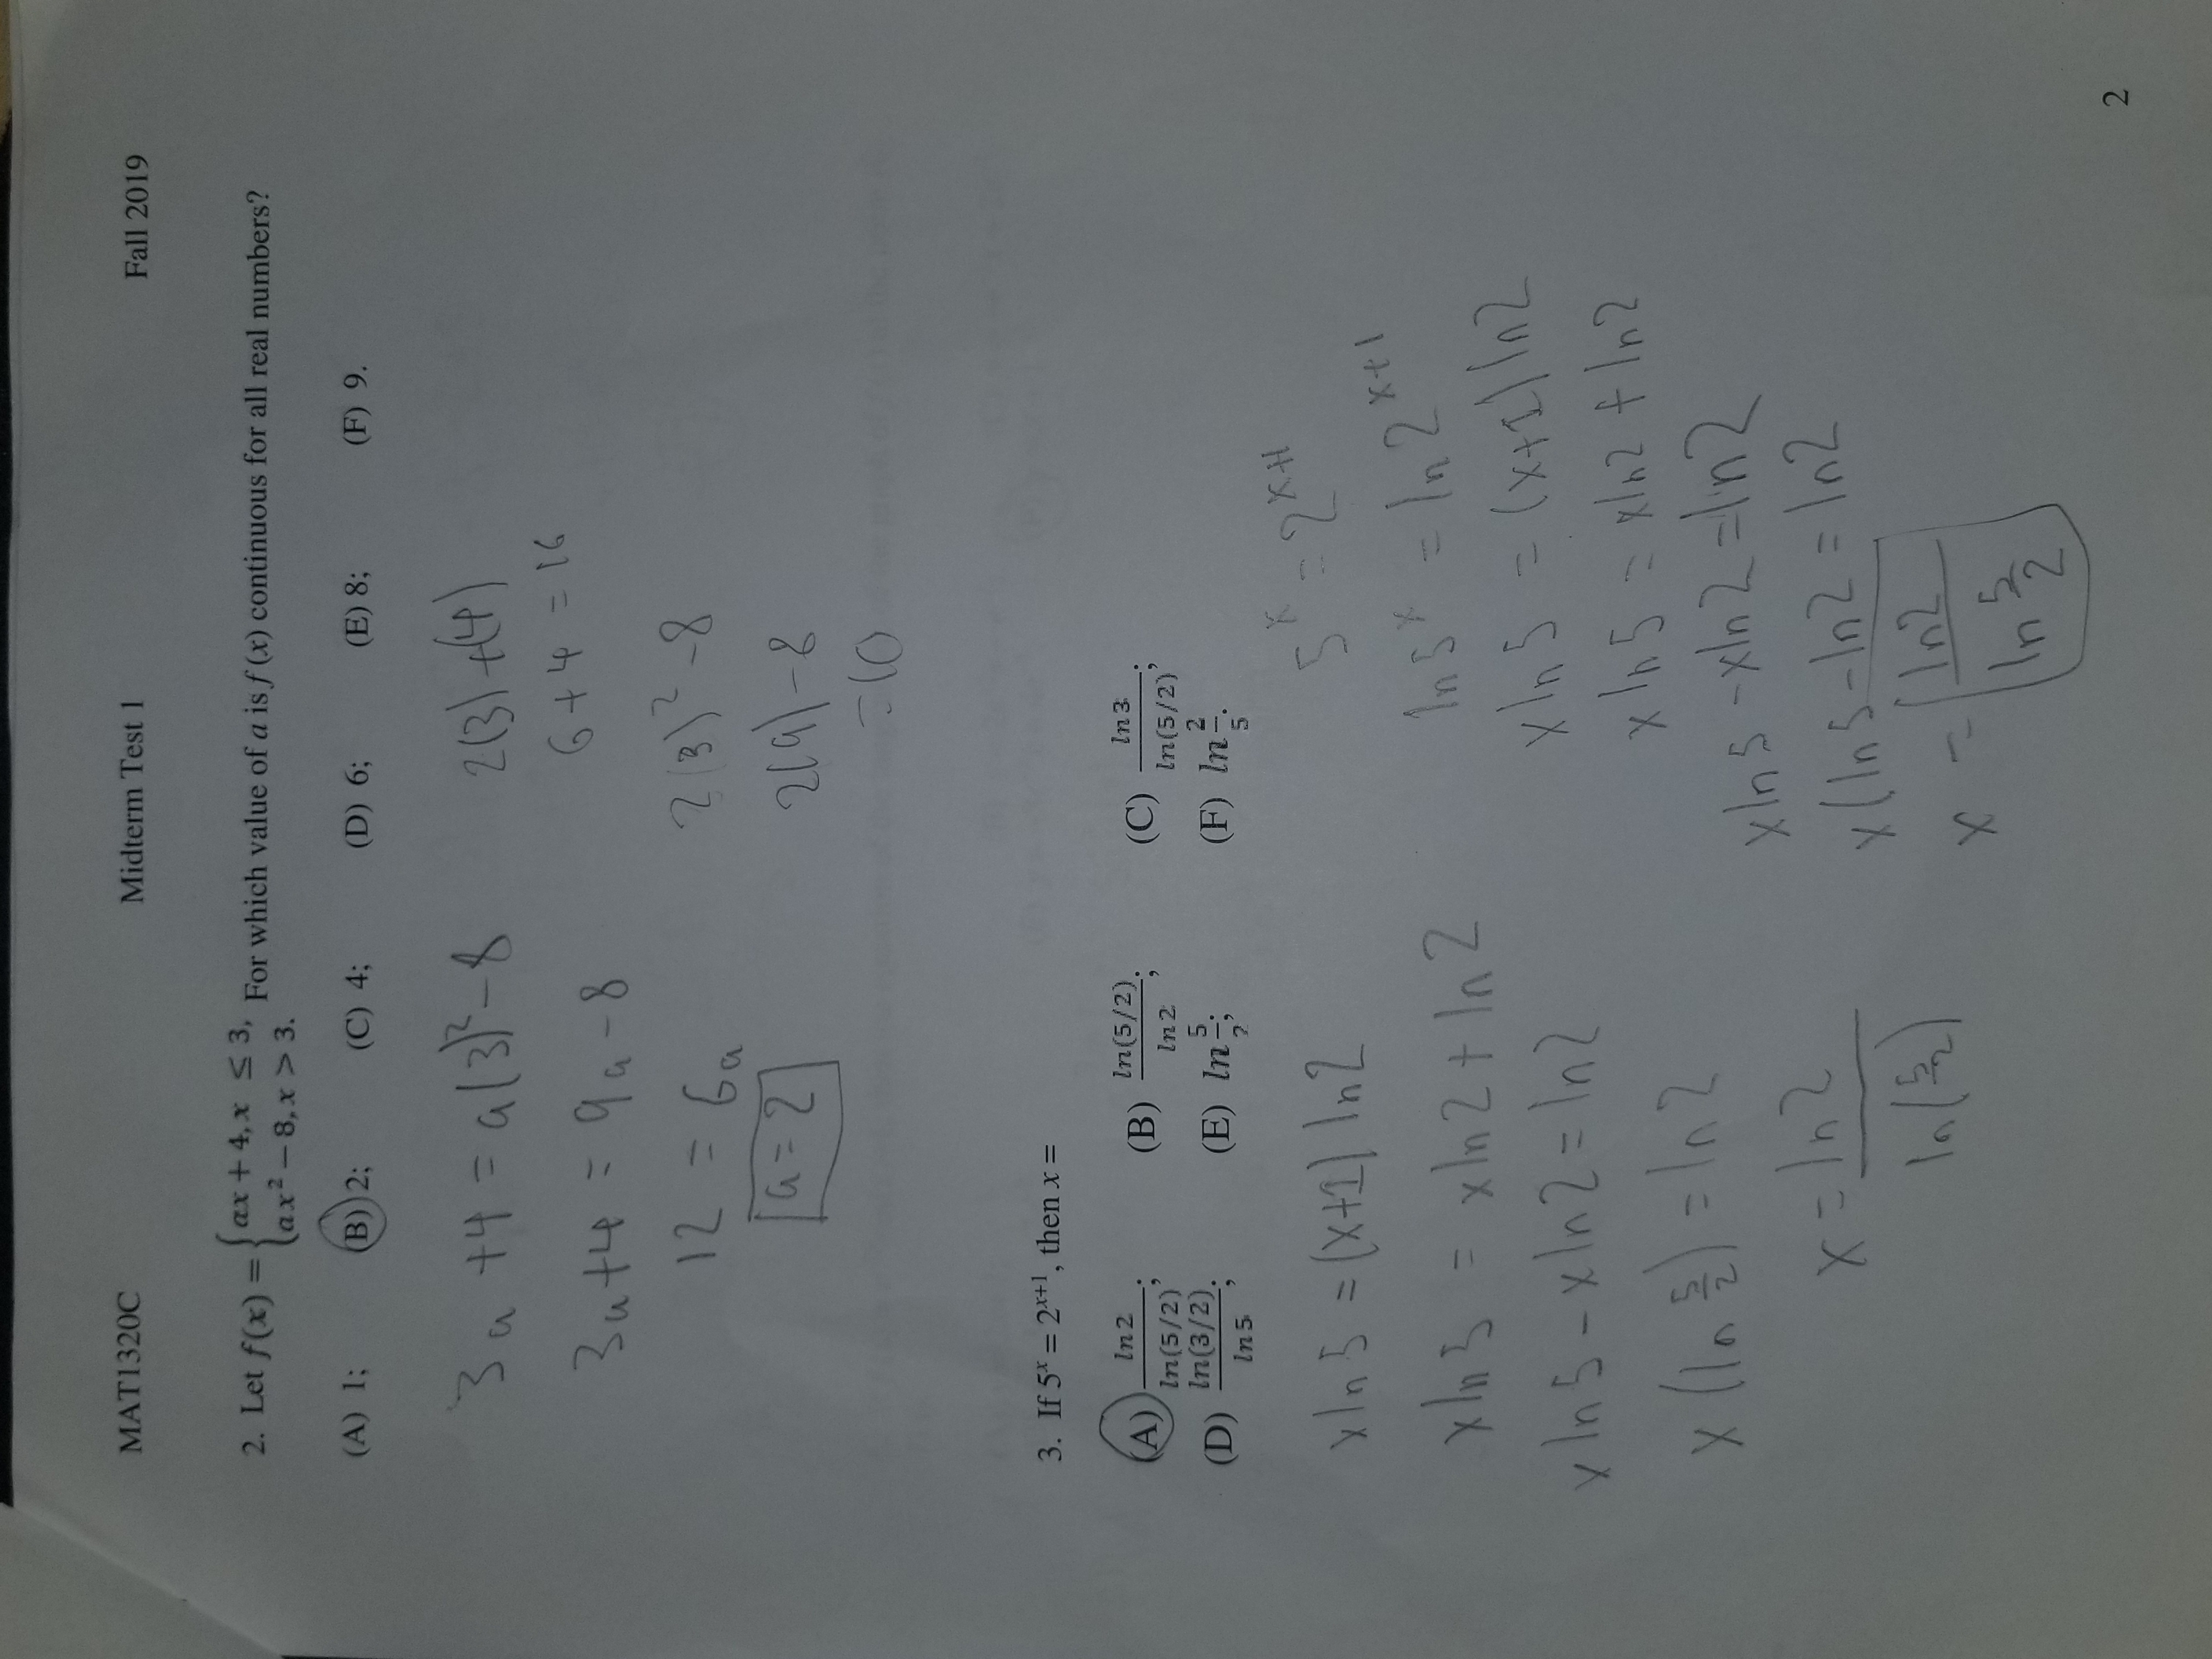 MAT1320C Midterm Test 1 Fall 2019
2. Let f(x) = { ax + 4, x ≤ 3, ax² − 8, x > 3. For which value of a is f(x) continuous for all real numbers?
(A) 1; (B) 2; (C) 4; (D) 6; (E) 8; (F) 9.
3a + 4 = a(3)² − 8
3a + 4 = 9a − 8
12 = 6a
a = 2
2(3) + (4)
6 + 4 = 16
2(3)² − 8
2(9) − 8
= 10
3. If 5^x = 2^{x+1}, then x =
(A) ln 2 / ln(5/2); (B) ln(5/2) / ln 2; (C) ln 3 / ln(5/2);
(D) ln(3/2) / ln 5; (E) ln 5/2; (F) ln 2/5.
x ln 5 = (x+1) ln 2
x ln 5 = x ln 2 + ln 2
x ln 5 − x ln 2 = ln 2
x (ln 5/2) = ln 2
x = ln 2 / ln(5/2)
5^x = 2^{x+1}
ln 5^x = ln 2^{x+1}
x ln 5 = (x+1) ln 2
x ln 5 = x ln 2 + ln 2
x ln 5 − x ln 2 = ln 2
x (ln 5 − ln 2 = ln 2
x = ln 2 / ln 5/2
2